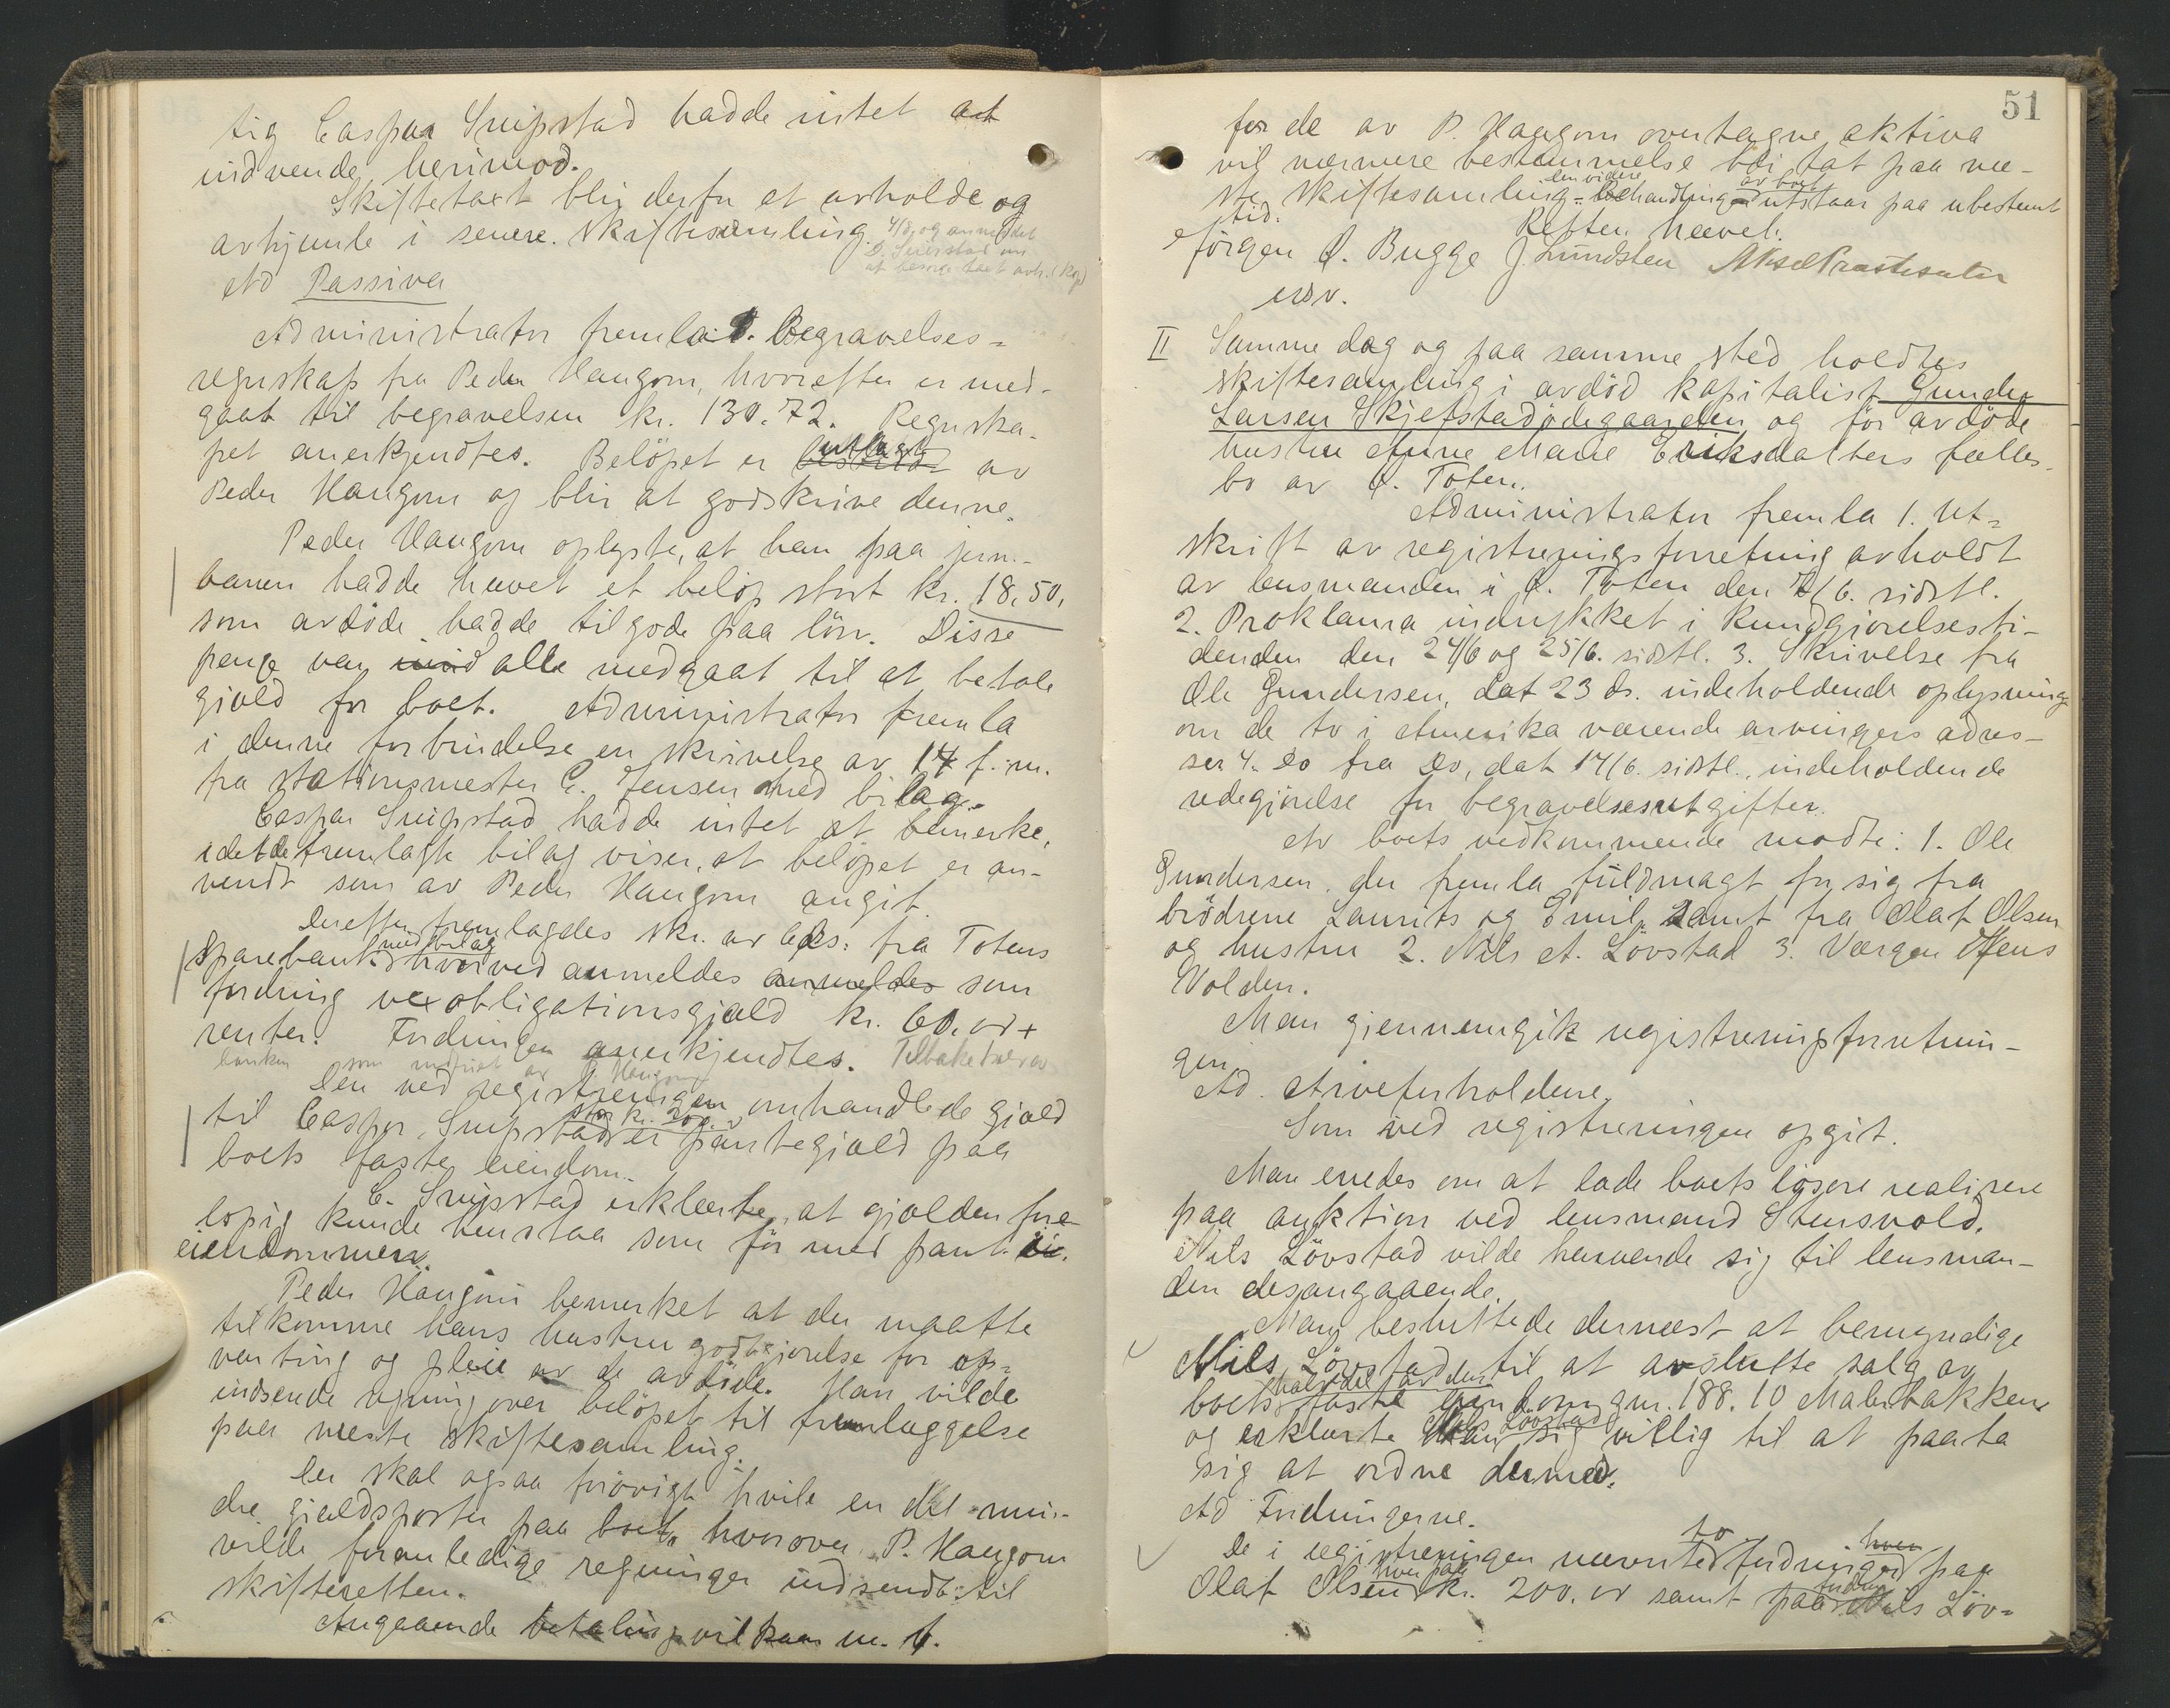 tig Caspar Snipstad hadde intet at
indvende herimod.
Skiftetaxt blir derfor at avholde og
avhjemle i senere skiftesamling.
Ad Passiva
Administrator fremla: 1. Begravelses-
regnskap fra Peder Haugom, hvorefter er med-
gaat til begravelsen kr. 130.72. Regnska-
pet anerkjendtes. Beløpet er utlagt av
Peder Haugom og blir at godskrive denne.
Peder Haugom oplyste, at han paa jern-
banen hadde hævet et beløp stort kr. 18,50,
som avdöde hadde tilgode paa lön. Disse
penge var alle medgaat til at betale
gjæld for boet. Administrator fremla
i denne forbindelse en skrivelse av 14 f. m.
fra stationsmester C. Jensen med bilag.
Caspar Snipstad hadde intet at bemerke,
idet de fremlagte bilag viser, at belöpet er an-
vendt som av Peder Haugom angit.
Derefter fremlagdes skr. av fra Totens
Sparebank med bilag hvorved anmeldes anmeldes som
fordring vexobligationsgjæld kr. 60.00 +
renter. Fordringen anerkjendtes.
Den ved registreringen omhandlede gjæld
til Caspar Snipstad stor kr. 200. er pantegjæld paa
boets faste eiendom.
C. Snipstad erklærte, at gjælden fore-
löpig kunde henstaa som för med pant i
eiendommen.
Peder Haugom bemerket at der maatte
tilkomme hans hustru godtgjörelse for op-
varting og pleie av de avdöde. Han vilde
indsende regning over belöpet til fremlæggelse
paa næste skiftesamling.
Der skal ogsaa forövrigt hvile en del min-
dre gjældsposter paa boet, hvorover P. Haugom
vilde foranledige regninger indsendt til
skifteretten.
Angaaende betalingsvilkaar m. v.
51
for de av P. Haugom overtagne aktiva
vil nærmere bestemmelse bli tat paa næ-
ste skiftesamling. Behandling av boet utstaar paa ubestemt
tid.
Retten hævet.
Jörgen Ö. Bugge J. Lundsten
II Samme dag og paa samme sted holdtes
skiftesamling i avdöd kapitalist Gunder
Larsen Skjefstadödegaarden og för avdöde
hustru Anne Marie Eriksdatters fælles-
bo av Ö. Toten.
Administrator fremla 1. Ut-
skrift av registreringsforretning avholdt
av lensmanden i Ö. Toten den 7/6. sidstl.
2. Proklama indrykket i Kundgjörelsesti-
denden den 24/6 og 25/6. sidstl. 3. Skrivelse fra
Ole Gundersen, dat 23 ds. indeholdende oplysning
om de to i Amerika værende arvingers adres-
ser 4. Do fra Do, dat 14/6. sidstl., indeholdende
redegjörelse for begravelsesutgifter.
Av boets vedkommende mödte: 1. Ole
Gundersen. der fremla fuldmagt for sig fra
brödrene Laurits og Emil, samt fra Olaf Olsen
og hustru 2. Nils A. Lövstad 3. Værgen Jens
Volden.
Man gjennemgik registreringsforretnin-
gen.
Ad. Arveforholdene.
Som ved registreringen opgit.
Man enedes om at lade boets lösöre realisere
paa auktion ved lensmand Stensvold.
Nils Lövstad vilde henvende sig til lensman-
den desangaaende.
Man besluttede dernæst at bemyndige
Nils Lövstad til at avslutte salg av
boets halvdel av den faste eiendom gnr. 188. 10 Malerbakken
og erklærte Nils Lövstad sig villig til at paata
sig at ordne dermed.
Ad Fordringerne.
De i registreringen nævnte to fordringer paa
Olaf Olsen kr. 200.00 samt paa Nils Löv-